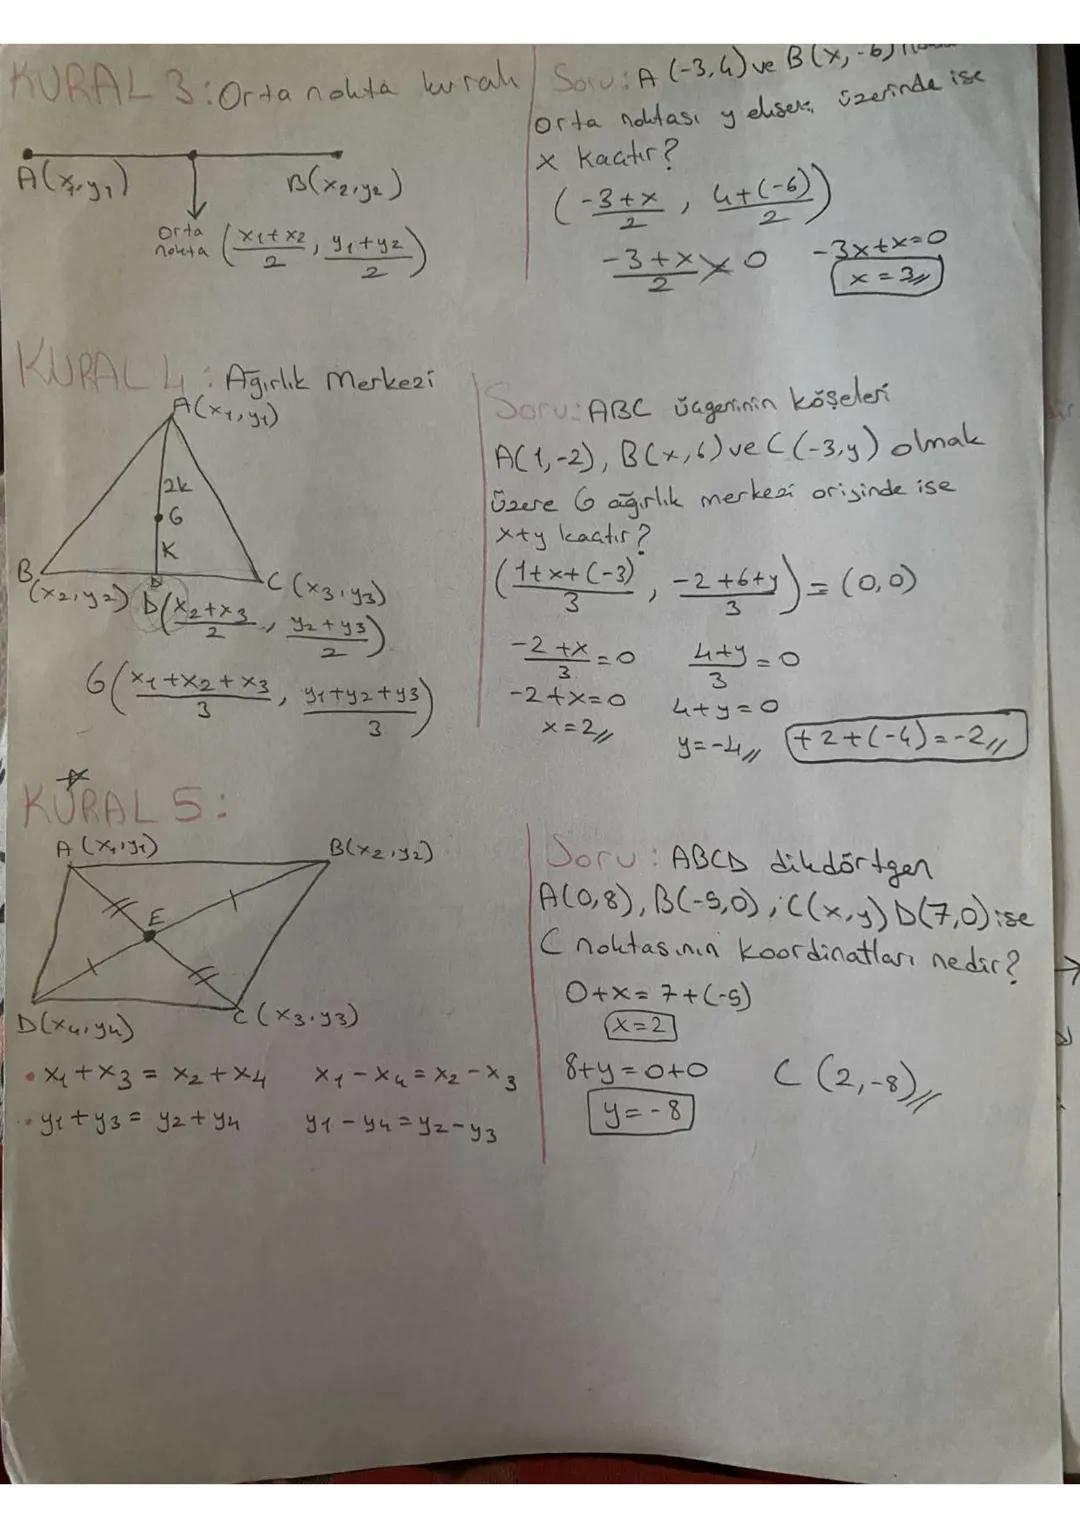 KURAL 3: Orta nokta kuralı
A(x₁,y₁)
B(x₂,y₂)
Orta nokta (x₁+x₂/2, y₁+y₂/2)
Soru: A (-3,4) ve B(x,-6)
orta noktası y ekseni üzerinde ise
x kaçtır?
(-3+x/2, 4+(-6)/2)
-3+x/2 = 0
-3x+x=0
x=3
KURAL 4: Ağırlık Merkezi
A(x₁,y₁)
2k
G
K
B
D
(x₂,y₂)
C (x₃,y₃)
D(x₂+x₃/2, y₂+y₃/2)
G(x₁+x₂+x₃/3, y₁+y₂+y₃/3)
Soru: ABC üçgeninin köşeleri
A(1,-2), B(x,6) ve C(-3,y) olmak
üzere G ağırlık merkezi orijinde ise
x+y kaçtır?
(1+x+(-3)/3, -2+6+y/3) = (0,0)
-2+x/3=0
4+y/3=0
-2+x=0
4+y=0
x=2
y=-4
+2+(-4)=-2
KURAL 5:
A (x₁,y₁)
B(x₂,y₂)
E
D(x₄,y₄)
C (x₃,y₃)
• x₁+x₃ = x₂+x₄
x₁-x₄ = x₂-x₃
• y₁+y₃ = y₂+y₄
y₁-y₄=y₂-y₃
Soru: ABCD dikdörtgen
A(0,8), B(-5,0), C(x,y) D(7,0) ise
C noktasının koordinatları nedir?
0+x=7+(-5)
x=2
8+y=0+0
y=-8
C (2,-8)